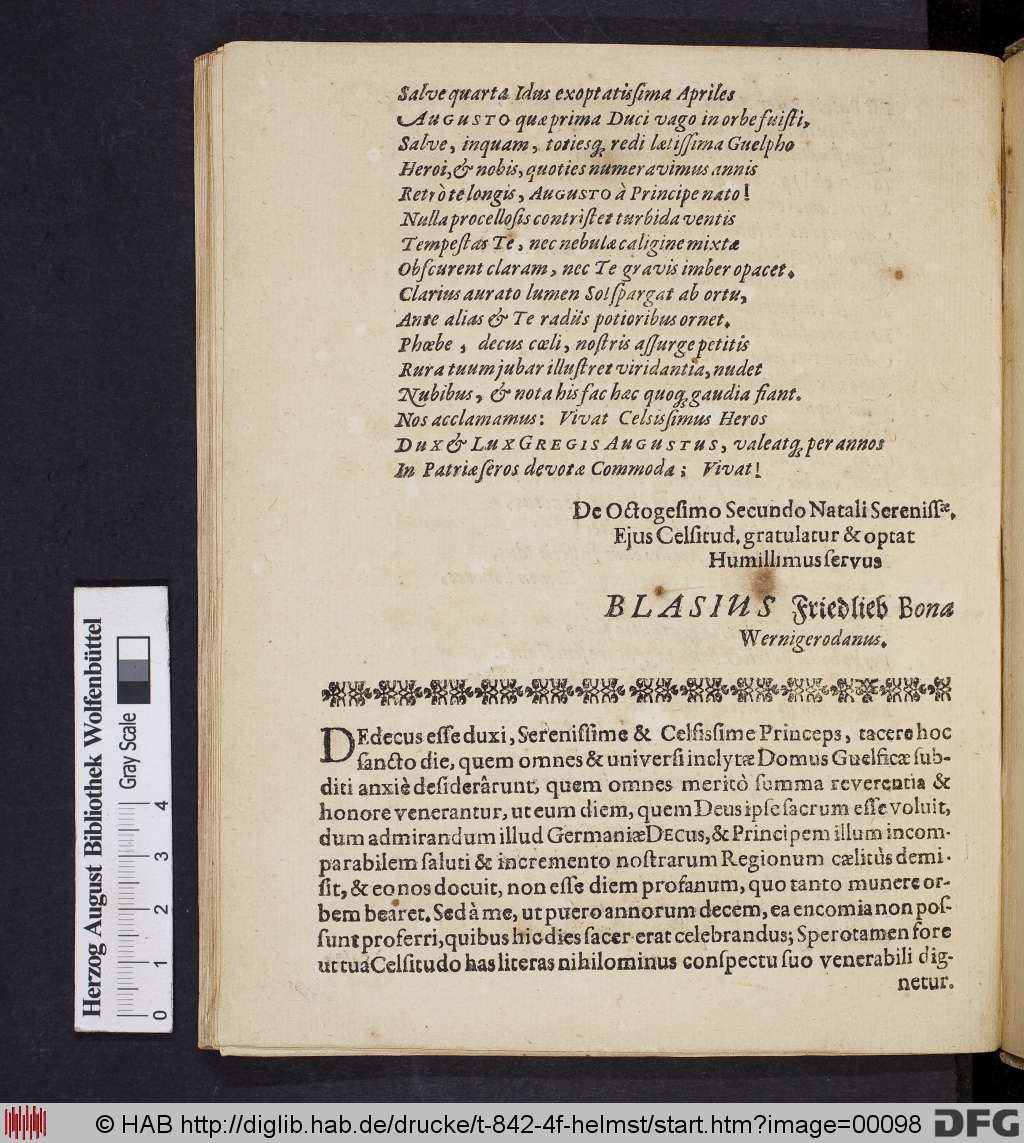 Salve quarta Idus exoptatissima Apriles
AUGUSTO quæ prima Duci vago in orbe fuiſti,
Salve, inquam, totiesq; redi lætiſſima Guelpho
Heroi, & nobis, quoties numeravimus annis
Retrò te longis, AUGUSTO à Principe nato!
Nulla procelloſis contriſtet turbida ventis
Tempeſtas Te, nec nebulæ caligine mixtæ
Obſcurent claram, nec Te gravis imber opacet.
Clarius aurato lumen Sol ſpargat ab ortu,
Ante alias & Te radiis potioribus ornet.
Phœbe, decus cœli, noſtris aſſurge petitis
Rura tuum jubar illuſtret viridantia, nudet
Nubibus, & nota his fac hæc quoq; gaudia fiant.
Nos acclamamus: Vivat Celsisſimus Heros
DUX & LUX GREGIS AUGUSTUS, valeatq; per annos
In Patriæ ſeros devotæ Commoda; Vivat!
De Octogeſimo Secundo Natali Sereniſſæ.
Ejus Celſitud. gratulatur & optat
Humillimus ſervus
BLASIUS Friedlieb Bona
Wernigerodanus.
DEdecus eſſe duxi, Sereniſſime & Celſisſime Princeps, tacere hoc
ſancto die, quem omnes & univerſi inclytæ Domus Guelficæ ſub-
diti anxiè deſiderârunt, quem omnes meritò ſumma reverentia &
honore venerantur, ut eum diem, quem Deus ipſe ſacrum eſſe voluit,
dum admirandum illud Germaniæ DECUS, & Principem illum incom-
parabilem ſaluti & incremento noſtrarum Regionum cælitùs demi-
ſit, & eo nos docuit, non eſſe diem profanum, quo tanto munere or-
bem bearet. Sed à me, ut puero annorum decem, ea encomia non poſ-
ſunt proferri, quibus hic dies ſacer erat celebrandus; Spero tamen fore
ut tua Celſitudo has literas nihilominus conſpectu ſuo venerabili dig-
netur.
Herzog August Bibliothek Wolfenbüttel
Gray Scale
0 1 2 3 4
© HAB http://diglib.hab.de/drucke/t-842-4f-helmst/start.htm?image=00098
DFG